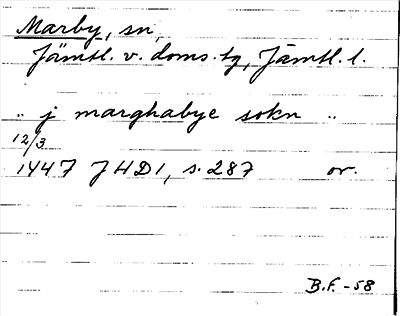 Marby, sn,
Jämtl. v. doms.tg, Jämtl. l.
„ j marghabye sokn „
12/3
1447 JHD1, s. 287 or.
B.F. -58